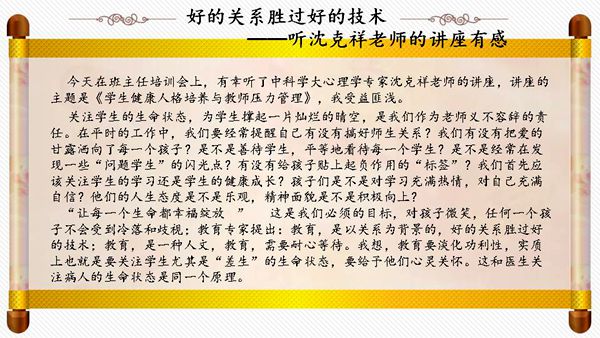 好的关系胜过好的技术
——听沈克祥老师的讲座有感
今天在班主任培训会上，有幸听了中科学大心理学专家沈克祥老师的讲座，讲座的
主题是《学生健康人格培养与教师压力管理》，我受益匪浅。
关注学生的生命状态，为学生撑起一片灿烂的晴空，是我们作为老师义不容辞的责
任。在平时的工作中，我们要经常提醒自己有没有搞好师生关系？我们有没有把爱的
甘露洒向了每一个孩子？是不是善待学生，平等地看待每一个学生？是不是经常在发
现一些“问题学生”的闪光点？有没有给孩子贴上起负作用的“标签”？我们首先应
该关注学生的学习还是学生的健康成长？孩子们是不是对学习充满热情，对自己充满
自信？他们的人生态度是不是乐观，精神面貌是不是积极向上？
“让每一个生命都幸福绽放 ” 这是我们必须的目标，对孩子微笑，任何一个孩
子不会受到冷落和歧视；教育专家提出：教育，是以关系为背景的，好的关系胜过好
的技术；教育，是一种人文，教育，需要耐心等待。我想，教育要淡化功利性，实质
上也就是要关注学生尤其是“差生”的生命状态，要给予他们心灵关怀。这和医生关
注病人的生命状态是同一个原理。